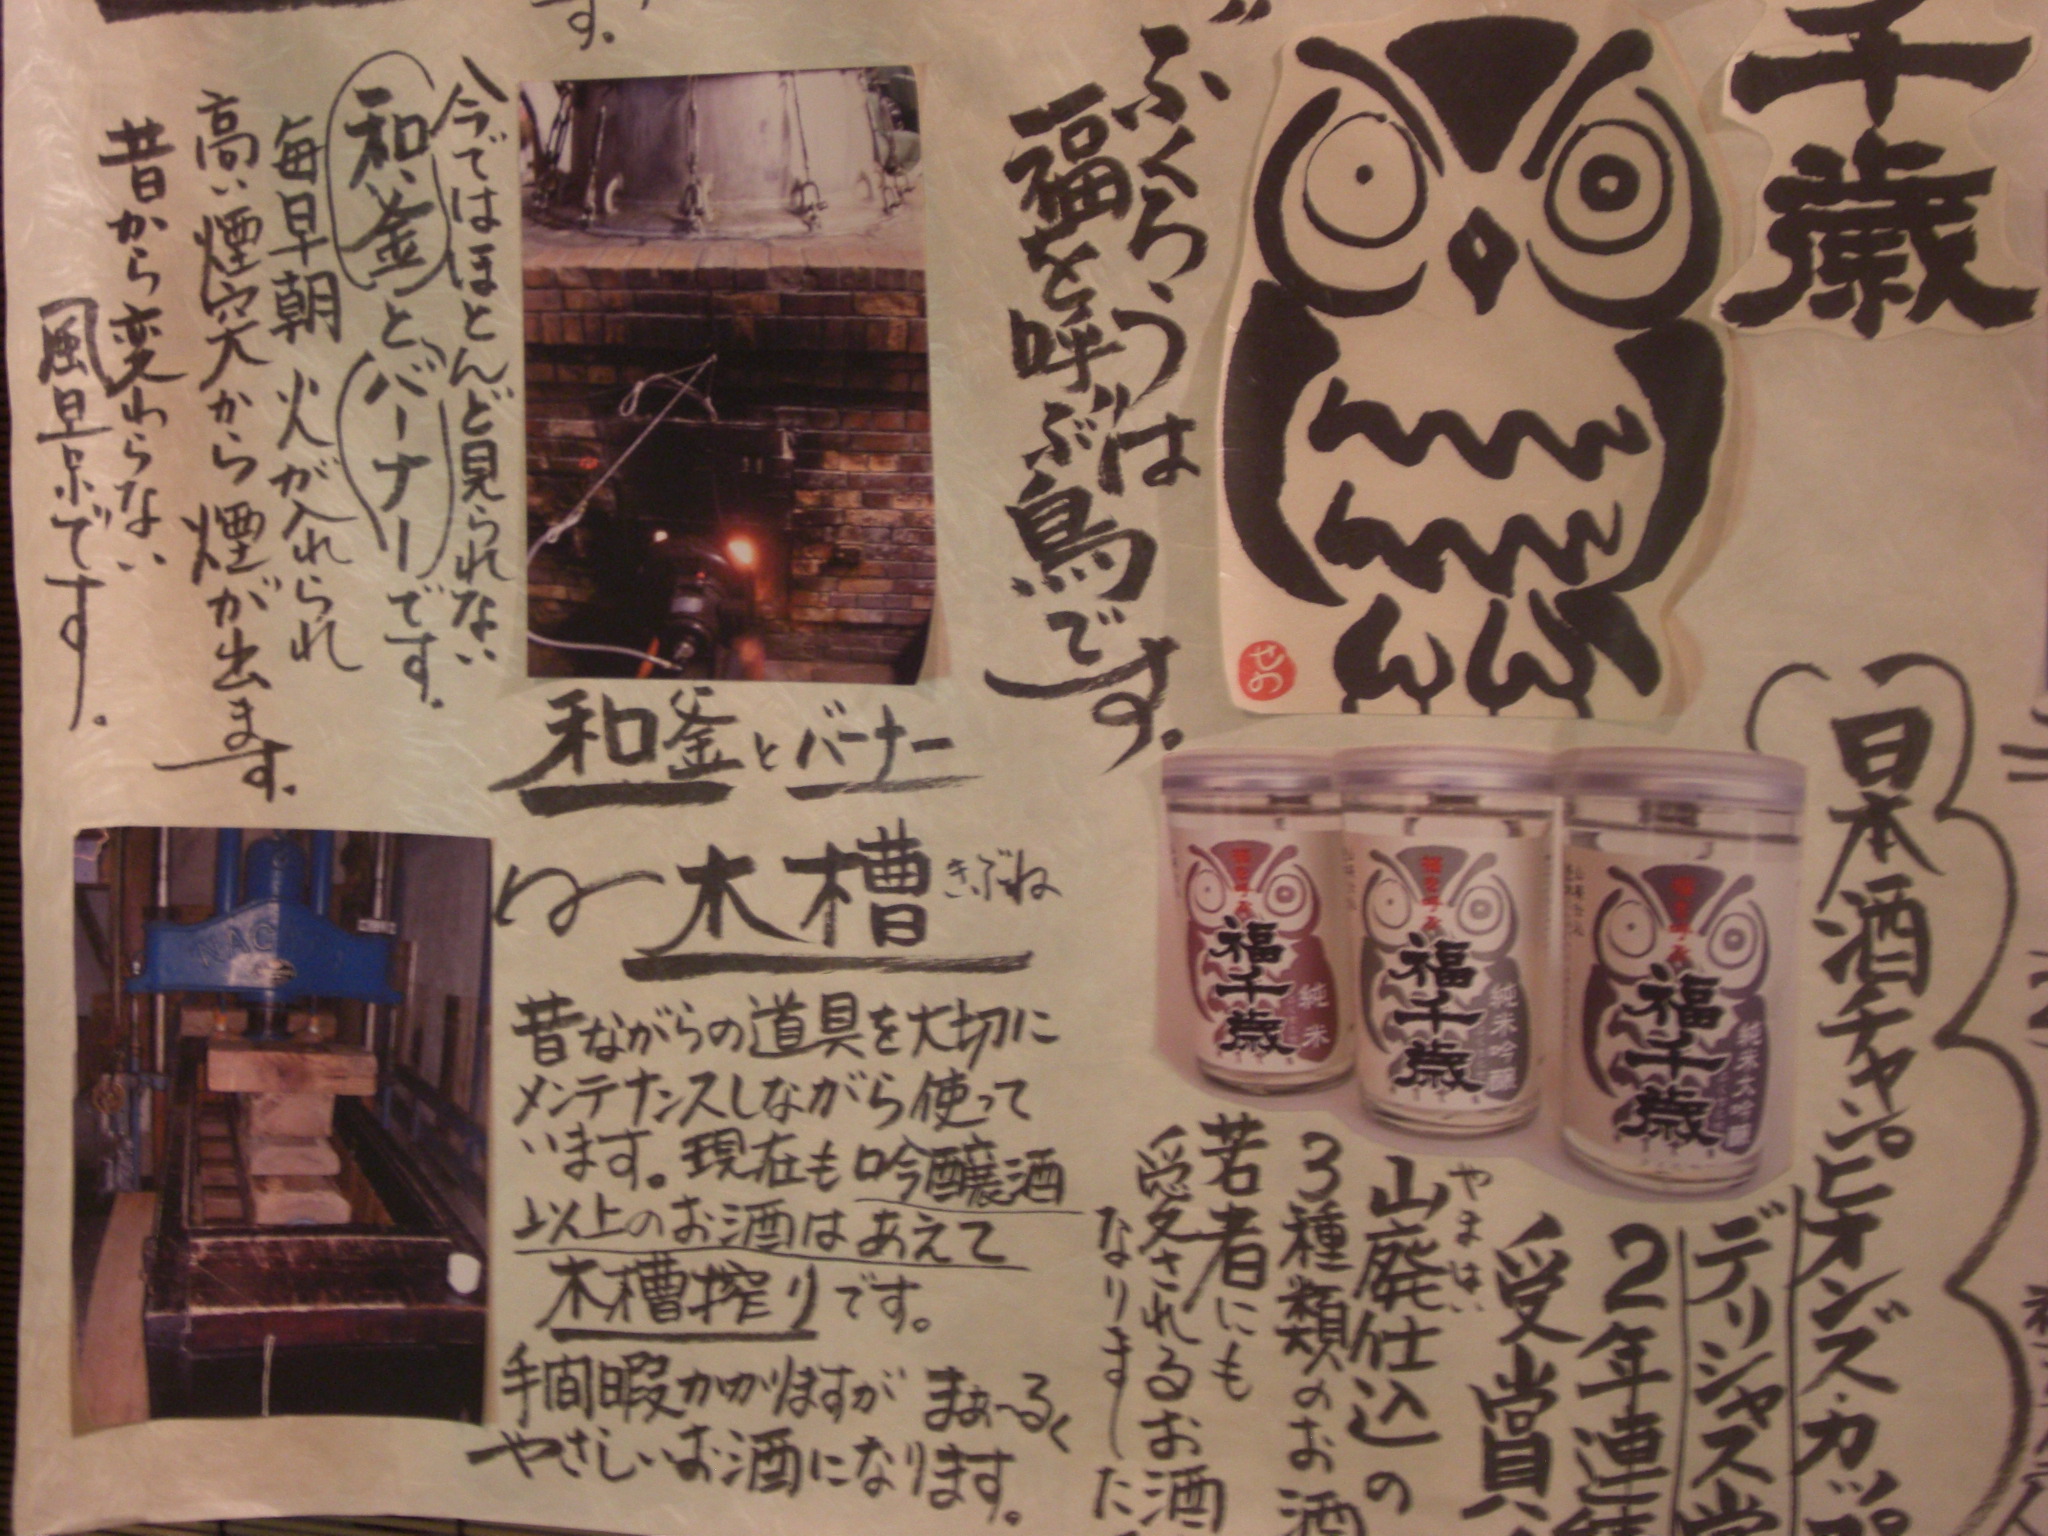 千歳
ふくろうは
福を呼ぶ鳥です。
せの
日本酒チャンピオンズ・カップ
デリシャス賞
2年連続
受賞
やまはい
山廃仕込の
3種類のお酒
若者にも
愛されるお酒
なりました
福を呼ぶ
福千歳
純米
福を呼ぶ
福千歳
純米吟醸
福を呼ぶ
福千歳
純米大吟醸
す。
今ではほとんど見られない
和釜とバーナーです。
毎早朝 火が入れられ
高い煙突から煙が出ます。
昔から変わらない
風景です。
和釜とバーナー
木槽 きぶね
昔ながらの道具を大切に
メンテナンスしながら使って
います。現在も吟醸酒
以上のお酒はあえて
木槽搾りです。
手間暇かかりますが まぁ〜るく
やさしいお酒になります。